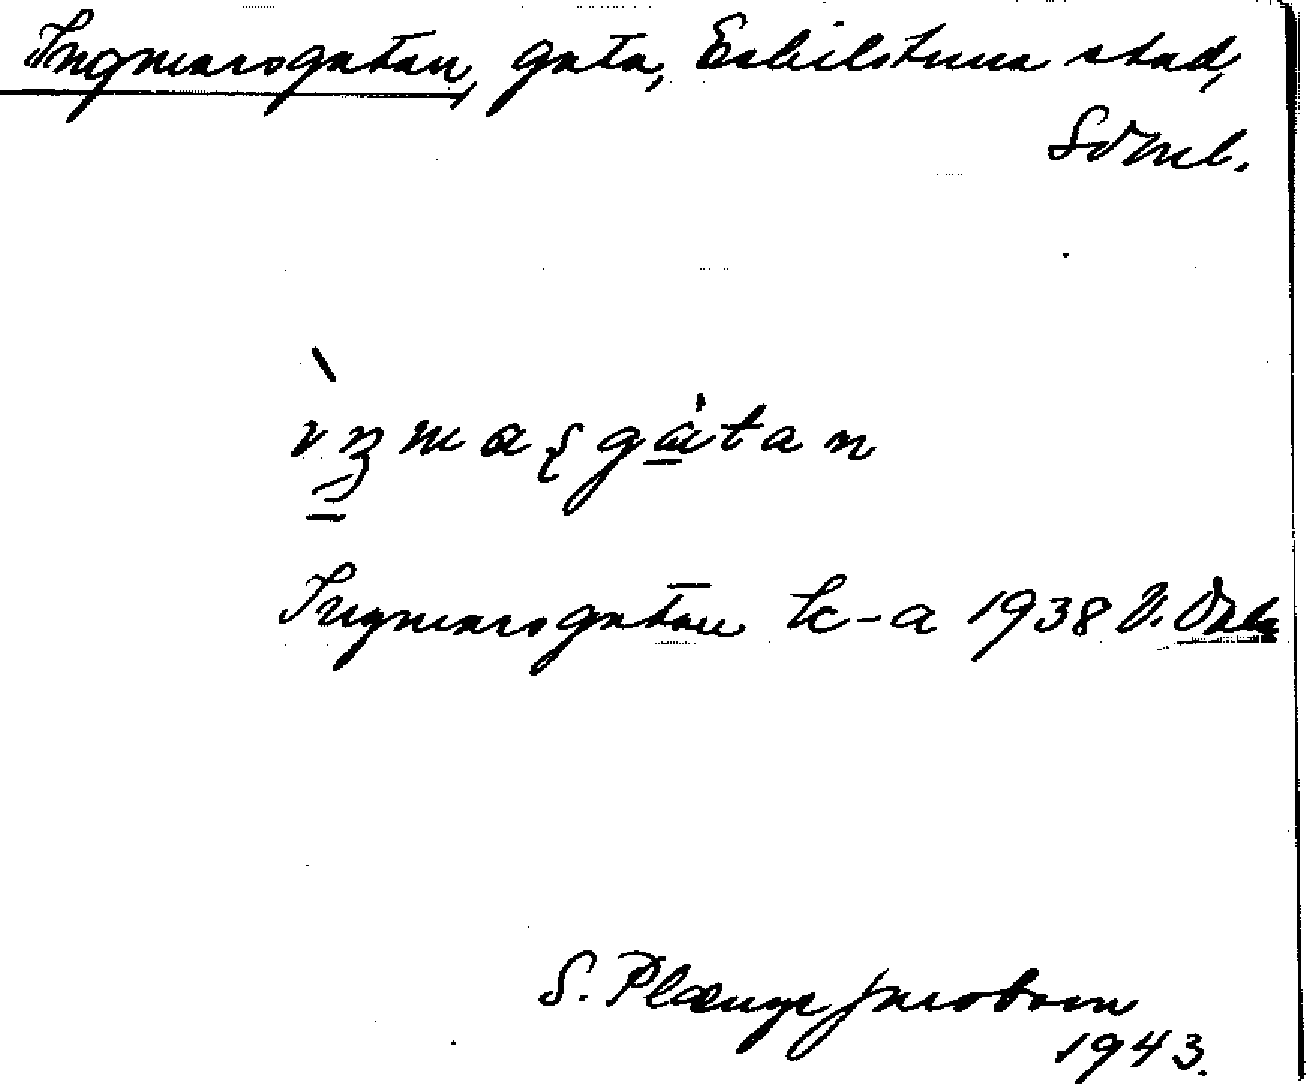 Ingmarsgatan, gata, Eskilstuna stad,
Södml.
ìŋmaʂgàtan
Ingmarsgatan tk-a 1938 V.
S. Plænge Jacobson
1943.